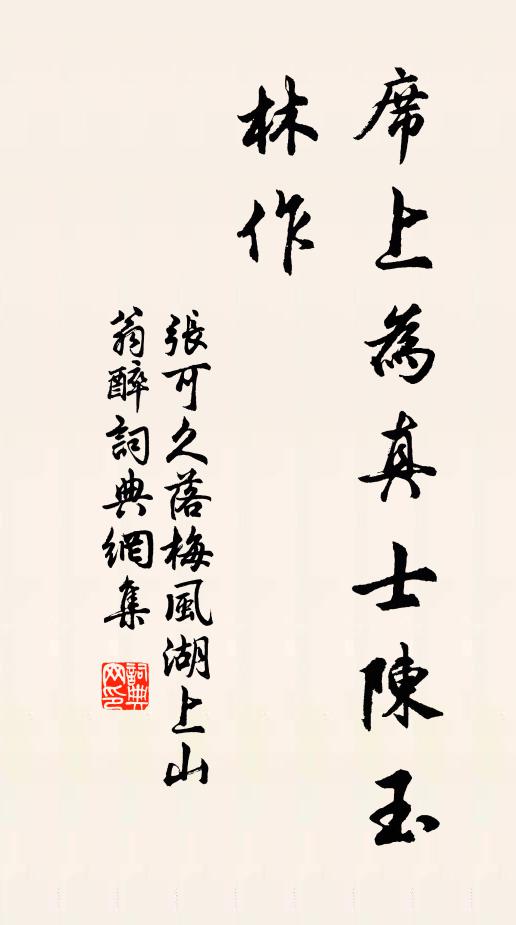 席上為真士陳玉
林作
張可久落梅風湖上山
翁醉詞典網集
詞典
网印